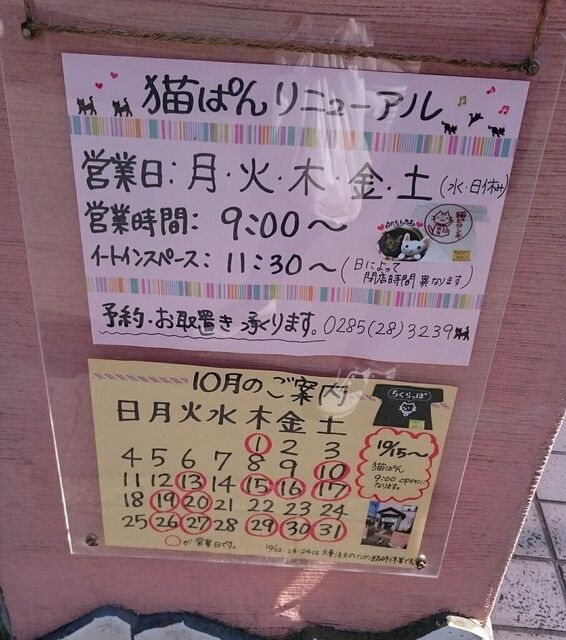 猫ぱんリニューアル
営業日：月・火・木・金・土(水・日休み)
営業時間：9:00〜
イートインスペース：11:30〜(日によって
閉店時間 異なります)
予約・お取置き 承ります。0285(28)3239
10月のご案内
日月火水木金土
1 2 3
4 5 6 7 8 9 10
11 12 13 14 15 16 17
18 19 20 21 22 23 24
25 26 27 28 29 30 31
○が営業日です。
らくらっぽ
10/15〜
猫ぱん
9:00 openに
なります。